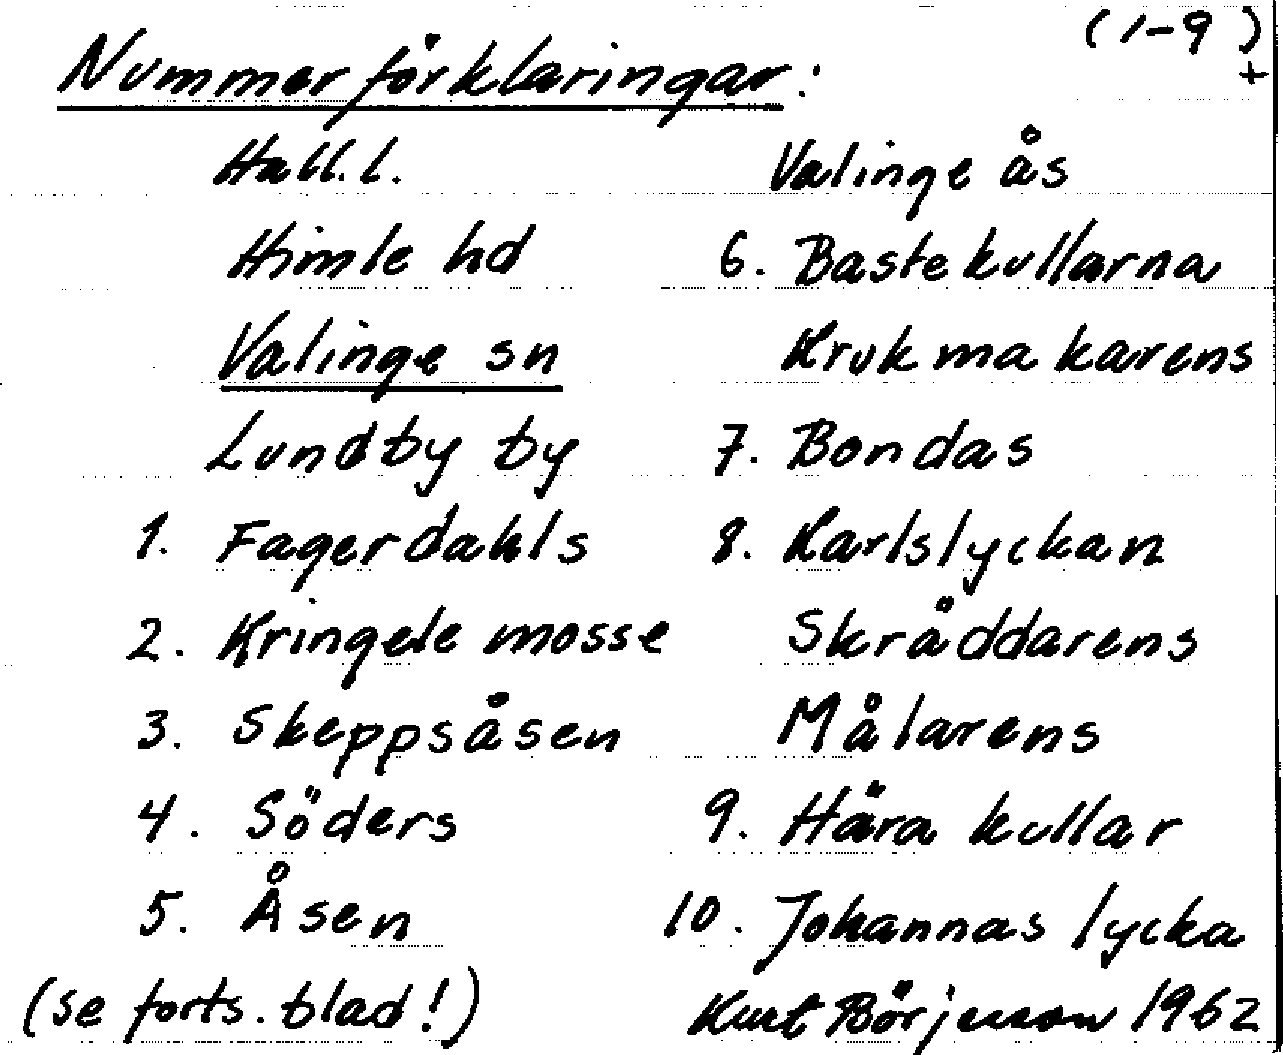 (1-9)
+
Nummerförklaringar:
Hall. l.
Himle hd
Valinge sn
Lundby by
1. Fagerdahls
2. Kringele mosse
3. Skeppsåsen
4. Söders
5. Åsen
(se forts. blad!)
Valinge ås
6. Bastekullarna
Krukmakarens
7. Bondas
8. Karlslyckan
Skräddarens
Målarens
9. Hära kullar
10. Johannas lycka
Kurt Börjesson 1962